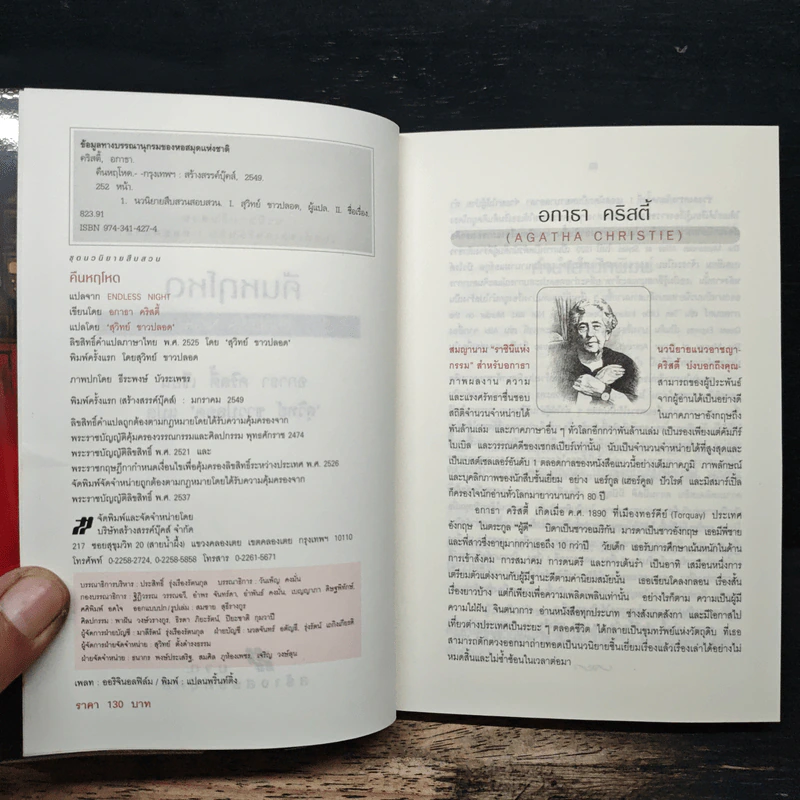 ข้อมูลทางบรรณานุกรมของหอสมุดแห่งชาติ
คริสตี้, อกาธา.
คืนหฤโหด.- -กรุงเทพฯ : สร้างสรรค์บุ๊คส์, 2549.
252 หน้า.
1. นวนิยายสืบสวนสอบสวน. I. สุวิทย์ ขาวปลอด, ผู้แปล. II. ชื่อเรื่อง.
823.91
ISBN 974-341-427-4
ชุดนวนิยายสืบสวน
คืนหฤโหด
แปลจาก ENDLESS NIGHT
เขียนโดย อกาธา คริสตี้
แปลโดย 'สุวิทย์ ขาวปลอด'
ลิขสิทธิ์คำแปลภาษาไทย พ.ศ. 2525 โดย 'สุวิทย์ ขาวปลอด'
พิมพ์ครั้งแรก โดยสุวิทย์ ขาวปลอด
ภาพปกโดย ธีระพงษ์ บัวระเพชร
พิมพ์ครั้งแรก (สร้างสรรค์บุ๊คส์) : มกราคม 2549
ลิขสิทธิ์คำแปลถูกต้องตามกฎหมายโดยได้รับความคุ้มครองจาก
พระราชบัญญัติคุ้มครองวรรณกรรมและศิลปกรรม พุทธศักราช 2474
พระราชบัญญัติลิขสิทธิ์ พ.ศ. 2521 และ
พระราชกฤษฎีกากำหนดเงื่อนไขเพื่อคุ้มครองลิขสิทธิ์ระหว่างประเทศ พ.ศ. 2526
จัดพิมพ์จำหน่ายถูกต้องตามกฎหมายโดยได้รับความคุ้มครองจาก
พระราชบัญญัติลิขสิทธิ์ พ.ศ. 2537
จัดพิมพ์และจัดจำหน่ายโดย
บริษัทสร้างสรรค์บุ๊คส์ จำกัด
217 ซอยสุขุมวิท 20 (สายน้ำผึ้ง) แขวงคลองเตย เขตคลองเตย กรุงเทพฯ 10110
โทรศัพท์ 0-2258-2724, 0-2258-5858 โทรสาร 0-2261-5671
บรรณาธิการบริหาร : ประสิทธิ์ รุ่งเรืองรัตนกุล บรรณาธิการ : วันเพ็ญ คงมั่น
กองบรรณาธิการ : ฐิฏิวรรณ วรรณฉวี, อำพร จันทร์ดา, อำพันธ์ คงมั่น, เบญญาภา
คศิพิมพ์ อดใจ ออกแบบปก/รูปเล่ม : สมชาย สุธีรางกูร
ศิลปกรรม : พาฝัน วงษ์วรางกูร, ธิรดา ภิยะรัตน์, ปิยะชาติ กุมวาปี
ผู้จัดการฝ่ายบัญชี : มาลีรัตน์ รุ่งเรืองรัตนกุล ฝ่ายบัญชี :
ผู้จัดการฝ่ายจัดจำหน่าย : สุวิทย์ ตั้งดำรงธรรม
ฝ่ายจัดจำหน่าย : ธนากร พงษ์ประเสริฐ, สมศิล ภูห้องเพชร, เจริญ วงษ์สุน
เพลท : ออริจินอลฟิล์ม / พิมพ์ : แปลนพริ้นท์ติ้ง
ราคา 130 บาท
อกาธา คริสตี้
(AGATHA CHRISTIE)
สมญานาม "ราชินีแห่ง นวนิยายแนวอาชญา-
กรรม" สำหรับอกาธา คริสตี้ บ่งบอกถึงคุณ-
ภาพผลงาน ความ สามารถของผู้ประพันธ์
และแรงศรัทธาชื่นชอบ จากผู้อ่านได้เป็นอย่างดี
สถิติจำนวนจำหน่ายได้ ในภาคภาษาอังกฤษถึง
พันล้านเล่ม และภาคภาษาอื่น ๆ ทั่วโลกอีกกว่าพันล้านเล่ม (เป็นรองเพียงแต่คัมภีร์
ไบเบิล และวรรณคดีของเชกสเปียร์เท่านั้น) นับเป็นจำนวนจำหน่ายได้ที่สูงสุดและ
เป็นเบสต์เซลเลอร์อันดับ 1 ตลอดกาลของหนังสือแนวนี้อย่างเต็มภาคภูมิ ภาพลักษณ์
และบุคลิกภาพของนักสืบชั้นเยี่ยม อย่าง แอร์กูล (เฮอร์คูล) ปัวโรต์ และมิสมาร์เปิ้ล
ก็ครองใจนักอ่านทั่วโลกมายาวนานกว่า 80 ปี
อกาธา คริสตี้ เกิดเมื่อ ค.ศ. 1890 ที่เมืองทอร์คีย์ (Torquay) ประเทศ
อังกฤษ ในตระกูล "ผู้ดี" บิดาเป็นชาวอเมริกัน มารดาเป็นชาวอังกฤษ เธอมีพี่ชาย
และพี่สาวซึ่งอายุมากกว่าเธอถึง 10 กว่าปี วัยเด็ก เธอรับการศึกษาเน้นหนักในด้าน
การเข้าสังคม การสมาคม การดนตรี และการเต้นรำ เป็นอาทิ เสมือนหนึ่งการ
เตรียมตัวแต่งงานกับผู้มีฐานะดีตามค่านิยมสมัยนั้น เธอเขียนโคลงกลอน เรื่องสั้น
เรื่องยาวบ้าง แต่ก็เพียงเพื่อความเพลิดเพลินเท่านั้น อย่างไรก็ตาม ความเป็นผู้มี
ความใฝ่ฝัน จินตนาการ อ่านหนังสือทุกประเภท ช่างสังเกตสังกา และมีโอกาสไป
เที่ยวต่างประเทศเป็นระยะ ๆ ตลอดชีวิต ได้กลายเป็นขุมทรัพย์แห่งวัตถุดิบ ที่เธอ
สามารถตักตวงออกมาถ่ายทอดเป็นนวนิยายชั้นเยี่ยมเรื่องแล้วเรื่องเล่าได้อย่างไม่
หมดสิ้นและไม่ซ้ำซ้อนในเวลาต่อมา